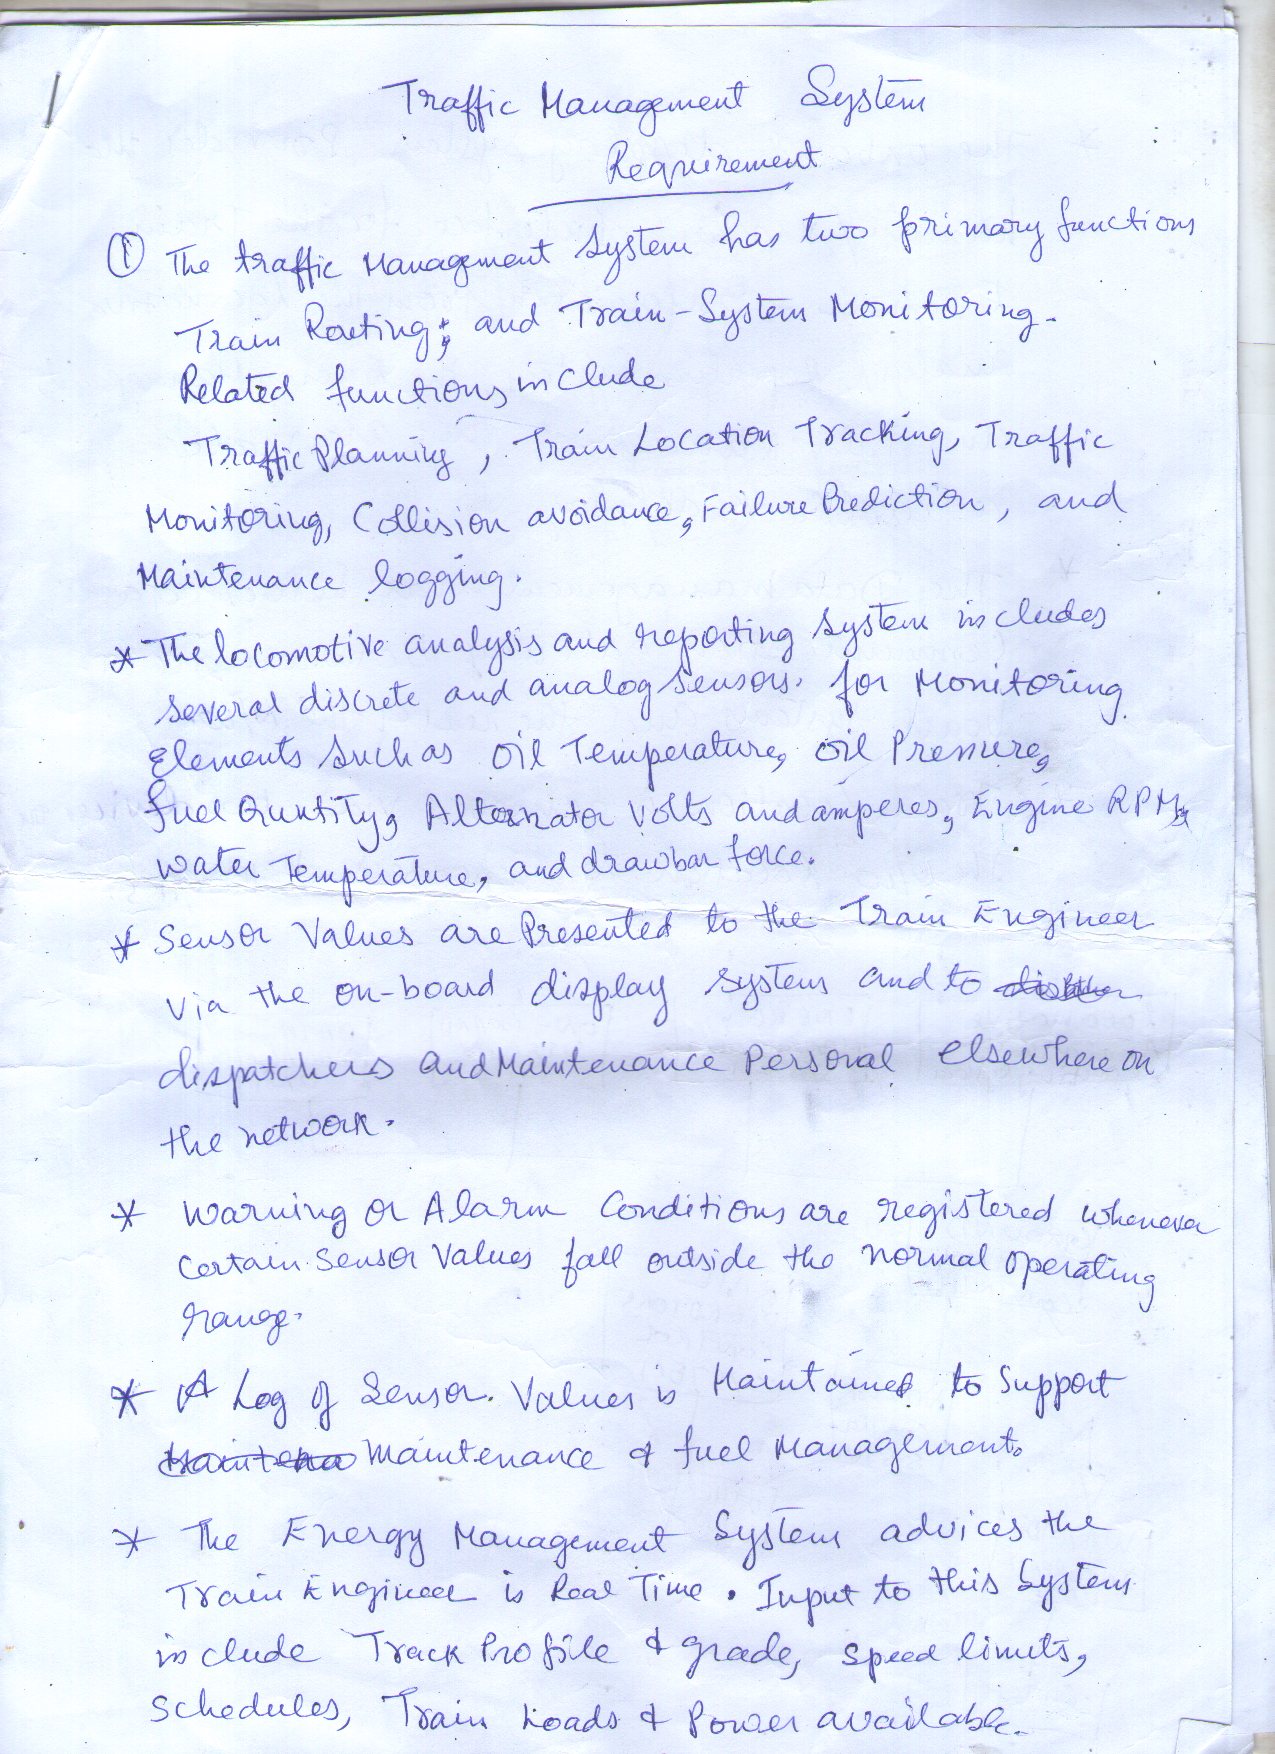 Traffic Management System
Requirement
① The traffic Management System has two primary functions
Train Routing; and Train-System Monitoring.
Related functions include
Traffic Planning, Train Location Tracking, Traffic
Monitoring, Collision avoidance, Failure Prediction, and
Maintenance logging.
* The locomotive analysis and reporting System includes
several discrete and analog sensors. for Monitoring
Elements Such as Oil Temperature, Oil Pressure,
fuel Quntity, Alternator Volts and amperes, Engine RPM,
water Temperature, and drawbar force.
* Sensor Values are Presented to the Train Engineer
via the on-board display system and to
dispatchers and Maintenance Personal elsewhere on
the network.
* Warning or Alarm Conditions are registered whenever
Certain Sensor Values fall outside the normal operating
range.
* A Log of Sensor. Values is Maintained to Support
Maintenance & fuel Management.
* The Energy Management System advices the
Train Engineer is Real Time. Input to this System
include Track Profile & grade, speed limits,
Schedules, Train Loads & Power available.